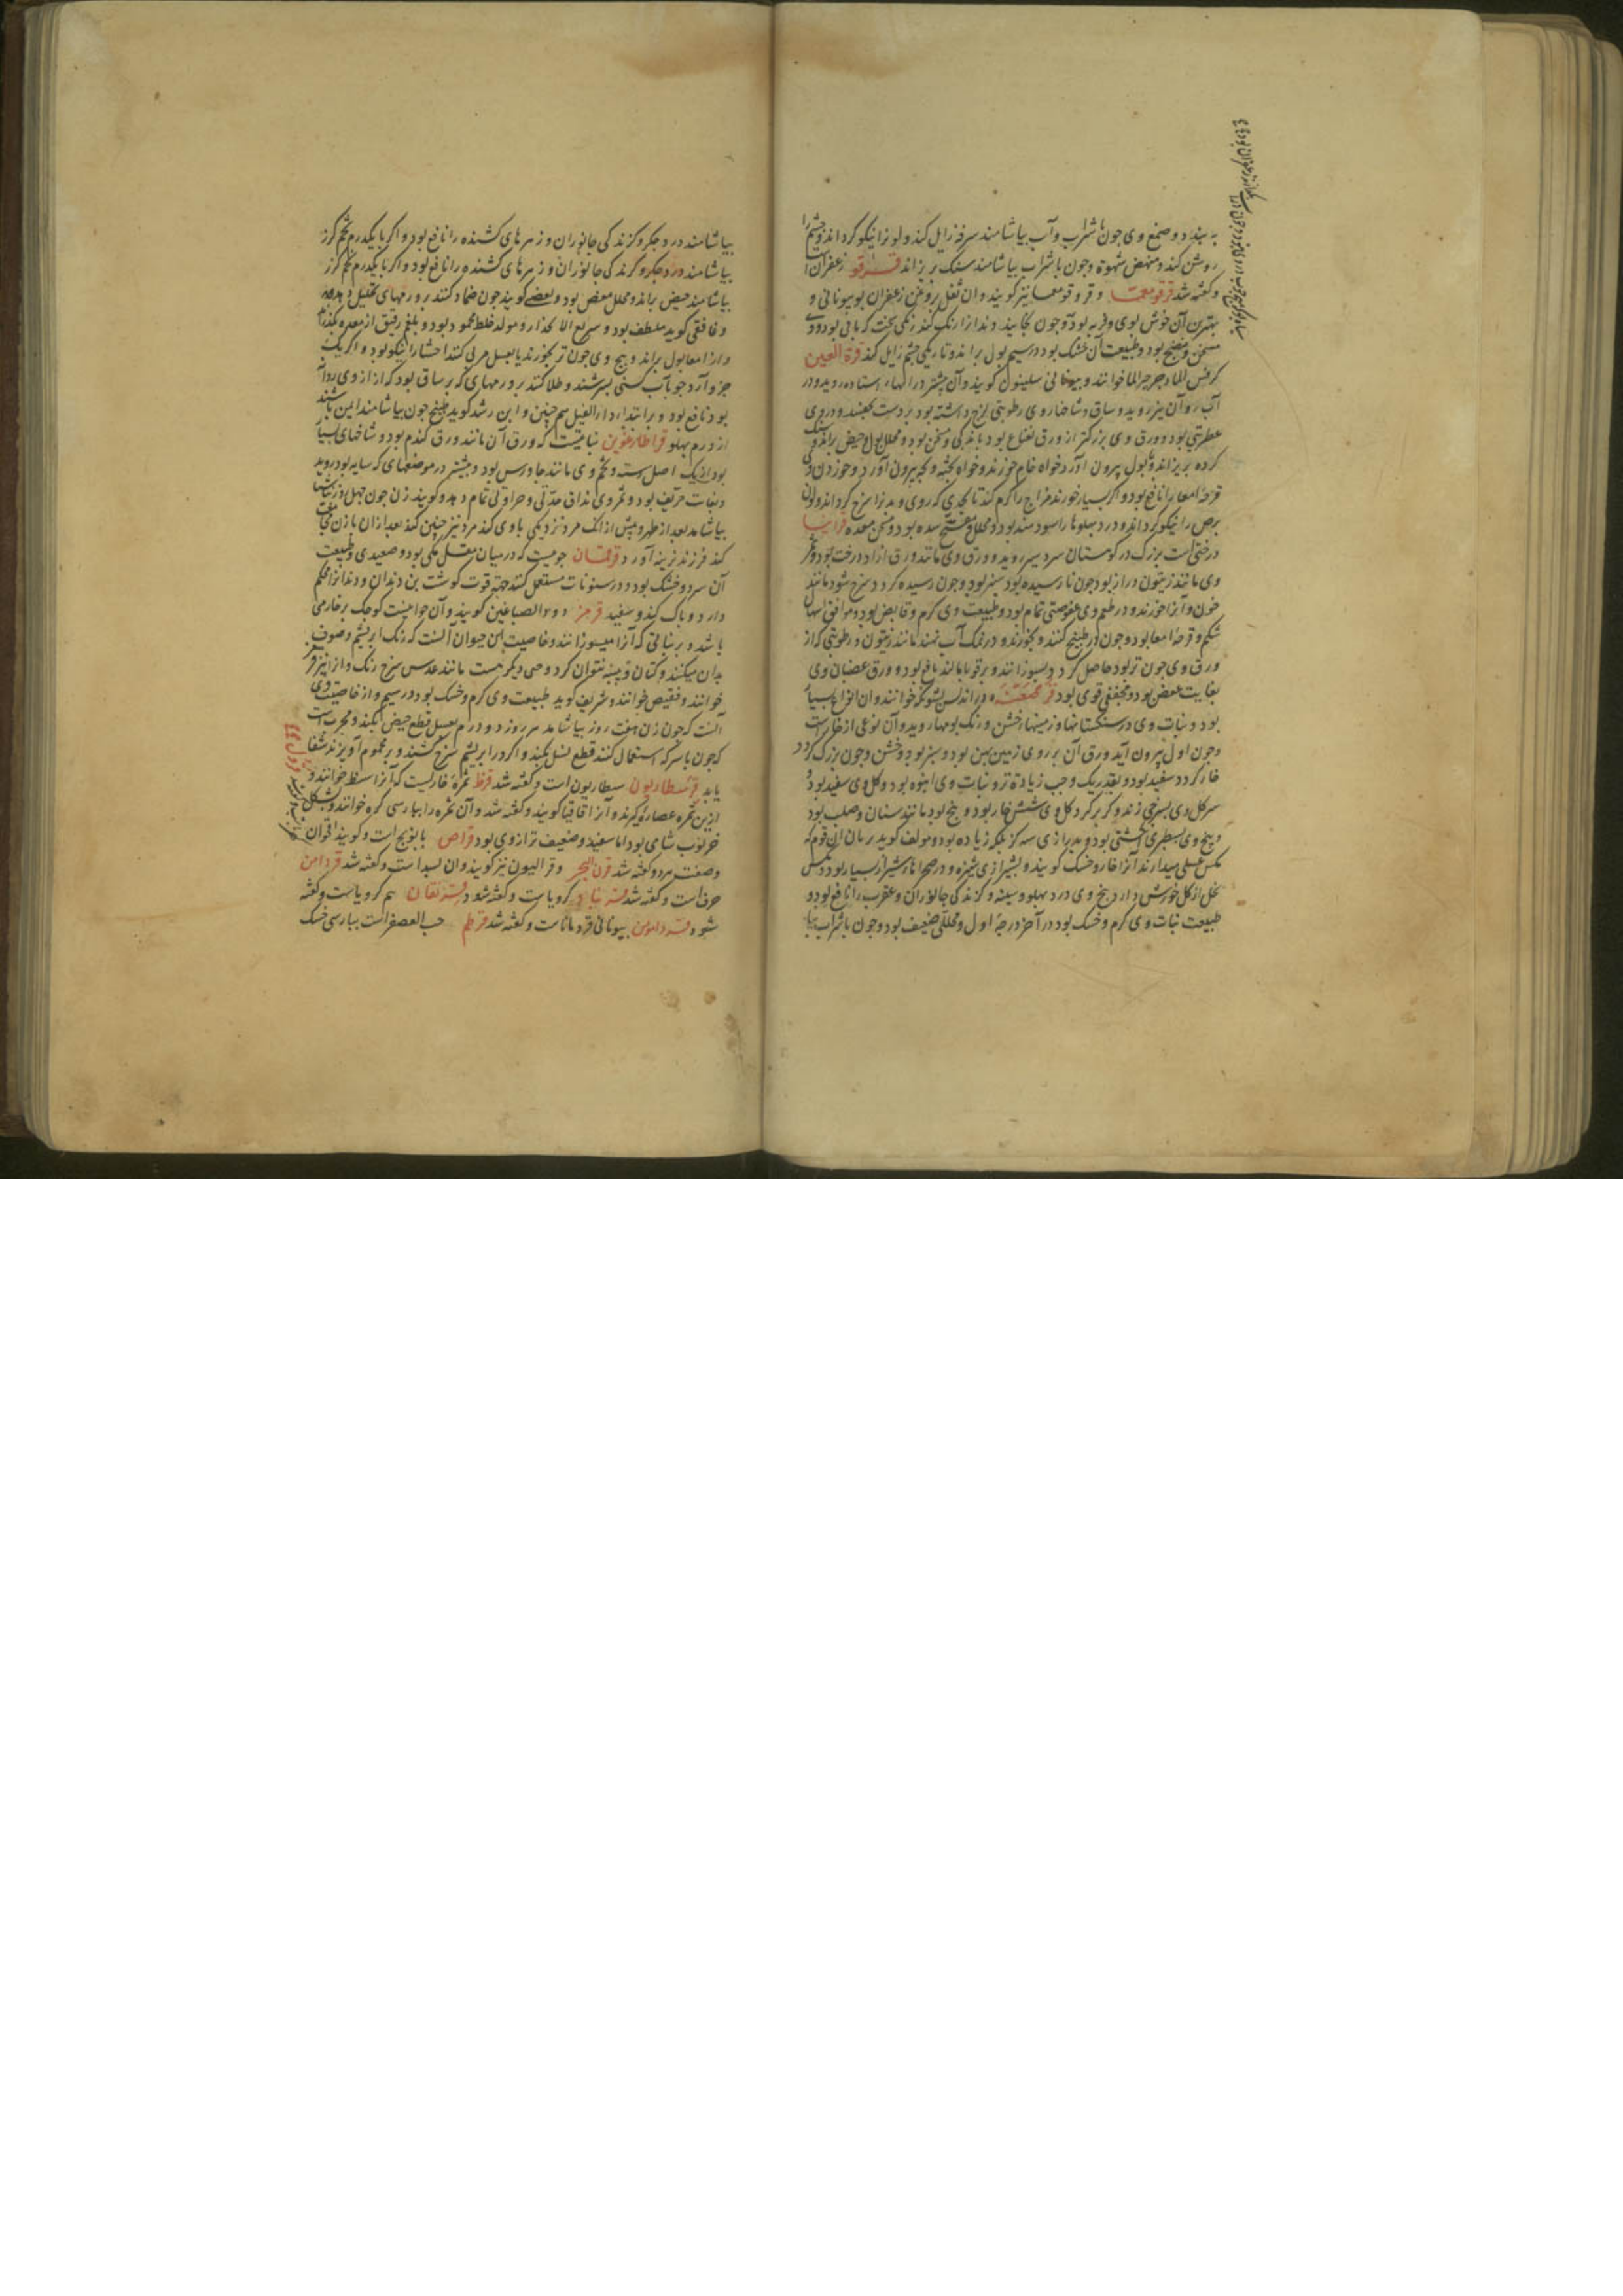 به بندد و صمغ وی چون با شراب و آب بیاشامند سرفه زایل کند و لون را نیکو گرداند و چشم را
روشن کند و منهض شهوة و چون با شراب بیاشامند سنک بریزاند زعفران
و کفته شد قرقومعما و قروقومعما نیز کویند و ان ثفل روغن زعفران بود بیونانی و
بهترین آن خوش بوی بود و چون بخایند دندانرا رنک کند رنکی سخت که باقی بود و وی
مسخن و منضج بود و طبیعت آن خشک بود در سیم بول براند و تاریکی چشم زایل کند قرة العین
کرفس الماء و جرجیر الما خوانند و بیونانی سلینون کویند و آن بیشتر در ابهاء استاده روید و در
آب روان نیز روید و ساق و شاخهاء وی رطوبتی لزج داشته بود بر دست بچفسد و در وی
عطریتی بود و ورق وی بزرکتر از ورق نعناع بود باندکی و مسخن بود و محلل بول و حیض براند و سنک
کرده بریزاند و ببول بیرون آورد خواه خام خورند و خواه پخته و بچه بیرون آورد و خوردن وی
قرحۀ امعا را نافع بود و اکر بسیار خورند مزاج را کرم کند تا بحدی که روی و بدنرا سرخ کرداند و لون
برص را نیکو کرداند و درد پهلوها را سودمند بود و محلل و مفتح سده بود و مسخن معده قرانیا
درختی است بزرک در کوهستان سردسیر روید و ورق وی مانند ورق ازاد درخت بود و ثمر
وی مانند زیتون دراز بود چون نارسیده بود سبز بود و چون رسیده کردد سرخ شود مانند
خون و آنرا خورند و در طعم وی عفوصتی تمام بود و طبیعت وی کرم و قابض بود و موافق اسهال
شکم و قرحۀ امعا بود و چون در طبیخ کنند و بخورند و در نمک آب نهند مانند زیتون و رطوبتی که از
ورق وی چون تر بود حاصل کردد بسوزانند و بر قوبا بمالند نافع بود و ورق و غضبان وی
بغایت عفص بود و مجفف قوی بود قرصعنه در اندلس بشوکه خوانند و ان انواع بسیار
بود و نبات وی در سنکستانها و زمینهاء خشن و ریک بومها روید و آن نوعی از خار است
و چون اول بیرون آید ورق آن بر روی زمین پهن بود و سبز بود و خشن و چون بزرک کردد
خار کردد سفید بود و بقدر یک وجب زیادة تر و نبات وی انبوه بود و کل وی سفید بود و
سر کل وی بسرخی زند و کرد بر کرد کل وی شش خار بود و بیخ بود مانند سنان و صلب بود
و بیخ وی بسطبری انکشتی بود و بدرازی سه کز بلکه زیاده بود و مؤلف کوید بر بان آن قوم که
مکس عسلی میدارند آنرا خار و خسک کویند و بشیرازی و در صحراها شیراز بسیار بود و مکس
نحل از کل خورش دارد بیخ وی درد پهلو و سینه و کزندکی جانوران و عقرب را نافع بود و
طبیعت نبات وی کرم و خسک بود در آخر درجۀ اول و محللی ضعیف بود و چون با شراب بیا
بیاشامند درد جکر و کزندکی جانوران و زهرهای کشنده را نافع بود و اکر با یکدرم تخم کرز
بیاشامند درد جکر و کزندکی جانوران و زهرهای کشنده را نافع بود و اکر با یکدرم تخم کرز
بیاشامند حیض براند و محلل مغص بود و بعضی کویند چون ضماد کنند بر ورمهای تحلیل دهد
و غافقی کوید ملطف بود و سریع الانحدار و مولد خلط محمود بود و بلغم رقیق از معده بکدراند
و از امعا بول براند و بیخ وی چون تر بخورند یا بعسل مربی کنند احشا را نیکو بود و اکر یک
جزو آرد جو بآب کسنی بسرشند و طلا کنند بر ورمهای که بر ساق بود که از وی روانه
بود نافع بود و بر ابتداء داء الفیل هم چنین و ابن رشد کوید طبیخ چون بیاشامند ایمن باشند
از ورم پهلو قراطاوغیون نباتیست که ورق آن مانند ورق کندم بود و شاخهای بسیار
بود از یک اصل رسته و تخم وی مانند جاورس بود و بیشتر در موضعهای که سایه بود روید
و بغایت حریف بود و ثمر وی مذاق حدتی و حراقی تمام دهد و کویند زن چون چهل روز
بیاشامد بعد از طهر و پیش از آنک مرد نزدیکی با وی کند مرد نیز چنین کند بعد از ان با زن مجامعت
کند فرزند نرینه آورد قرقمان چوبیست که در میان مقل مکی بود و صعیدی و طبیعت
آن سرد و خشک بود و در سنونات مستعمل کنند جهت قوت کوشت بن دندان و دندانرا محکم
دارد و پاک کند و سفید قرمز دود الصباغین کویند و آن حیوانیست کوچک بر خار می
باشد و بر نباتی که آنرا میسوزانند و خاصیت این حیوان آنست که رنک ابریشم و صوف
بدان میکنند و کتان و پنبه نتوان کرد و حبی دیکر هست مانند عدس سرخ رنک و انرا نیز قرمز
خوانند و فقیص خوانند و شریف کوید طبیعت وی کرم و خشک بود در سیم و از خاصیت وی
آنست که چون زن هفت روز بیاشامد هر روز دو درم بعسل قطع حیض بکند و مجرب است
که چون با سرکه استعمال کنند قطع نسل بکند و اکر در ابریشم سرخ کشند و بر محموم آویزند شفا
یابد قرسطاریون سطاریون است و کفته شد قرظ ثمرۀ خاریست که آنرا سنط خوانند و
ازین ثمره عصاره کیرند و آنرا اقاقیا کویند و کفته شد و آن ثمره را بپارسی کره خوانند و بشکل
خرنوب شامی بود اما سفید و ضعیف تر از وی بود قراص بابونج است و کویند اقحوان
وصفت هر دو کفته شد قرن البحر و قرالیون نیز کویند و ان بسد است و کفته شد قردامن
حرف است و کفته شد کرویا است و کفته شود هم کرویا است و کفته
شود بیونانی قردمانا است و کفته شد قرطم حب العصفر است بپارسی خسک